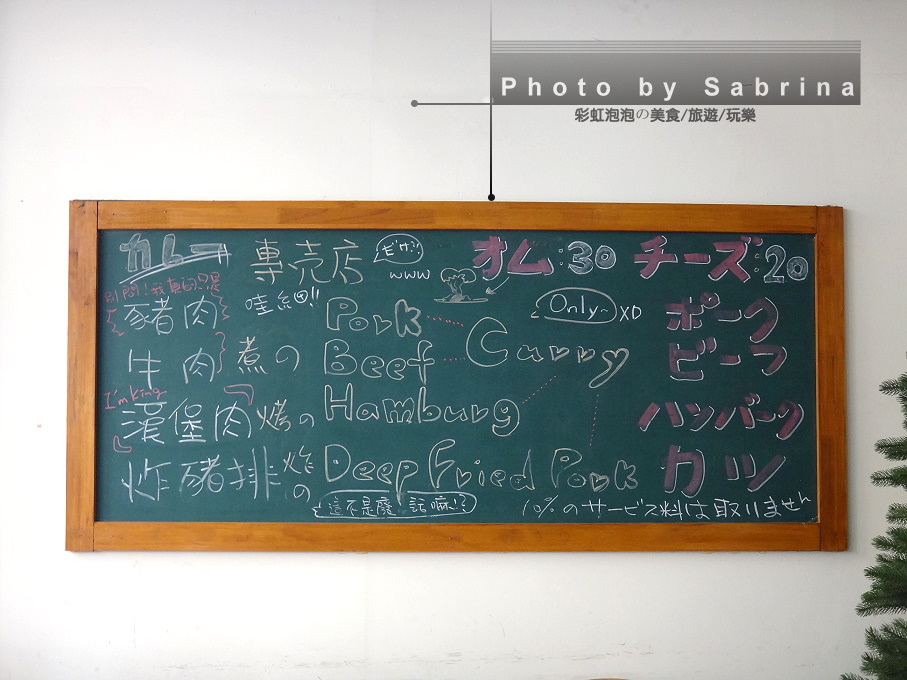 Photo by Sabrina
彩虹泡泡の美食/旅遊/玩樂
カレー 專売店 www オム:30 チーズ:20
別問!我真的只是
豬肉 哇絲田!! Pork Only~ XD ポーク
牛肉 煮の Beef Curry ビーフ
I'm King
漢堡肉 烤の Hamburg ハンバーグ
炸豬排 炸の Deep Fried Pork カツ
這不是廢話嘛!? 10%のサービス料は取りません